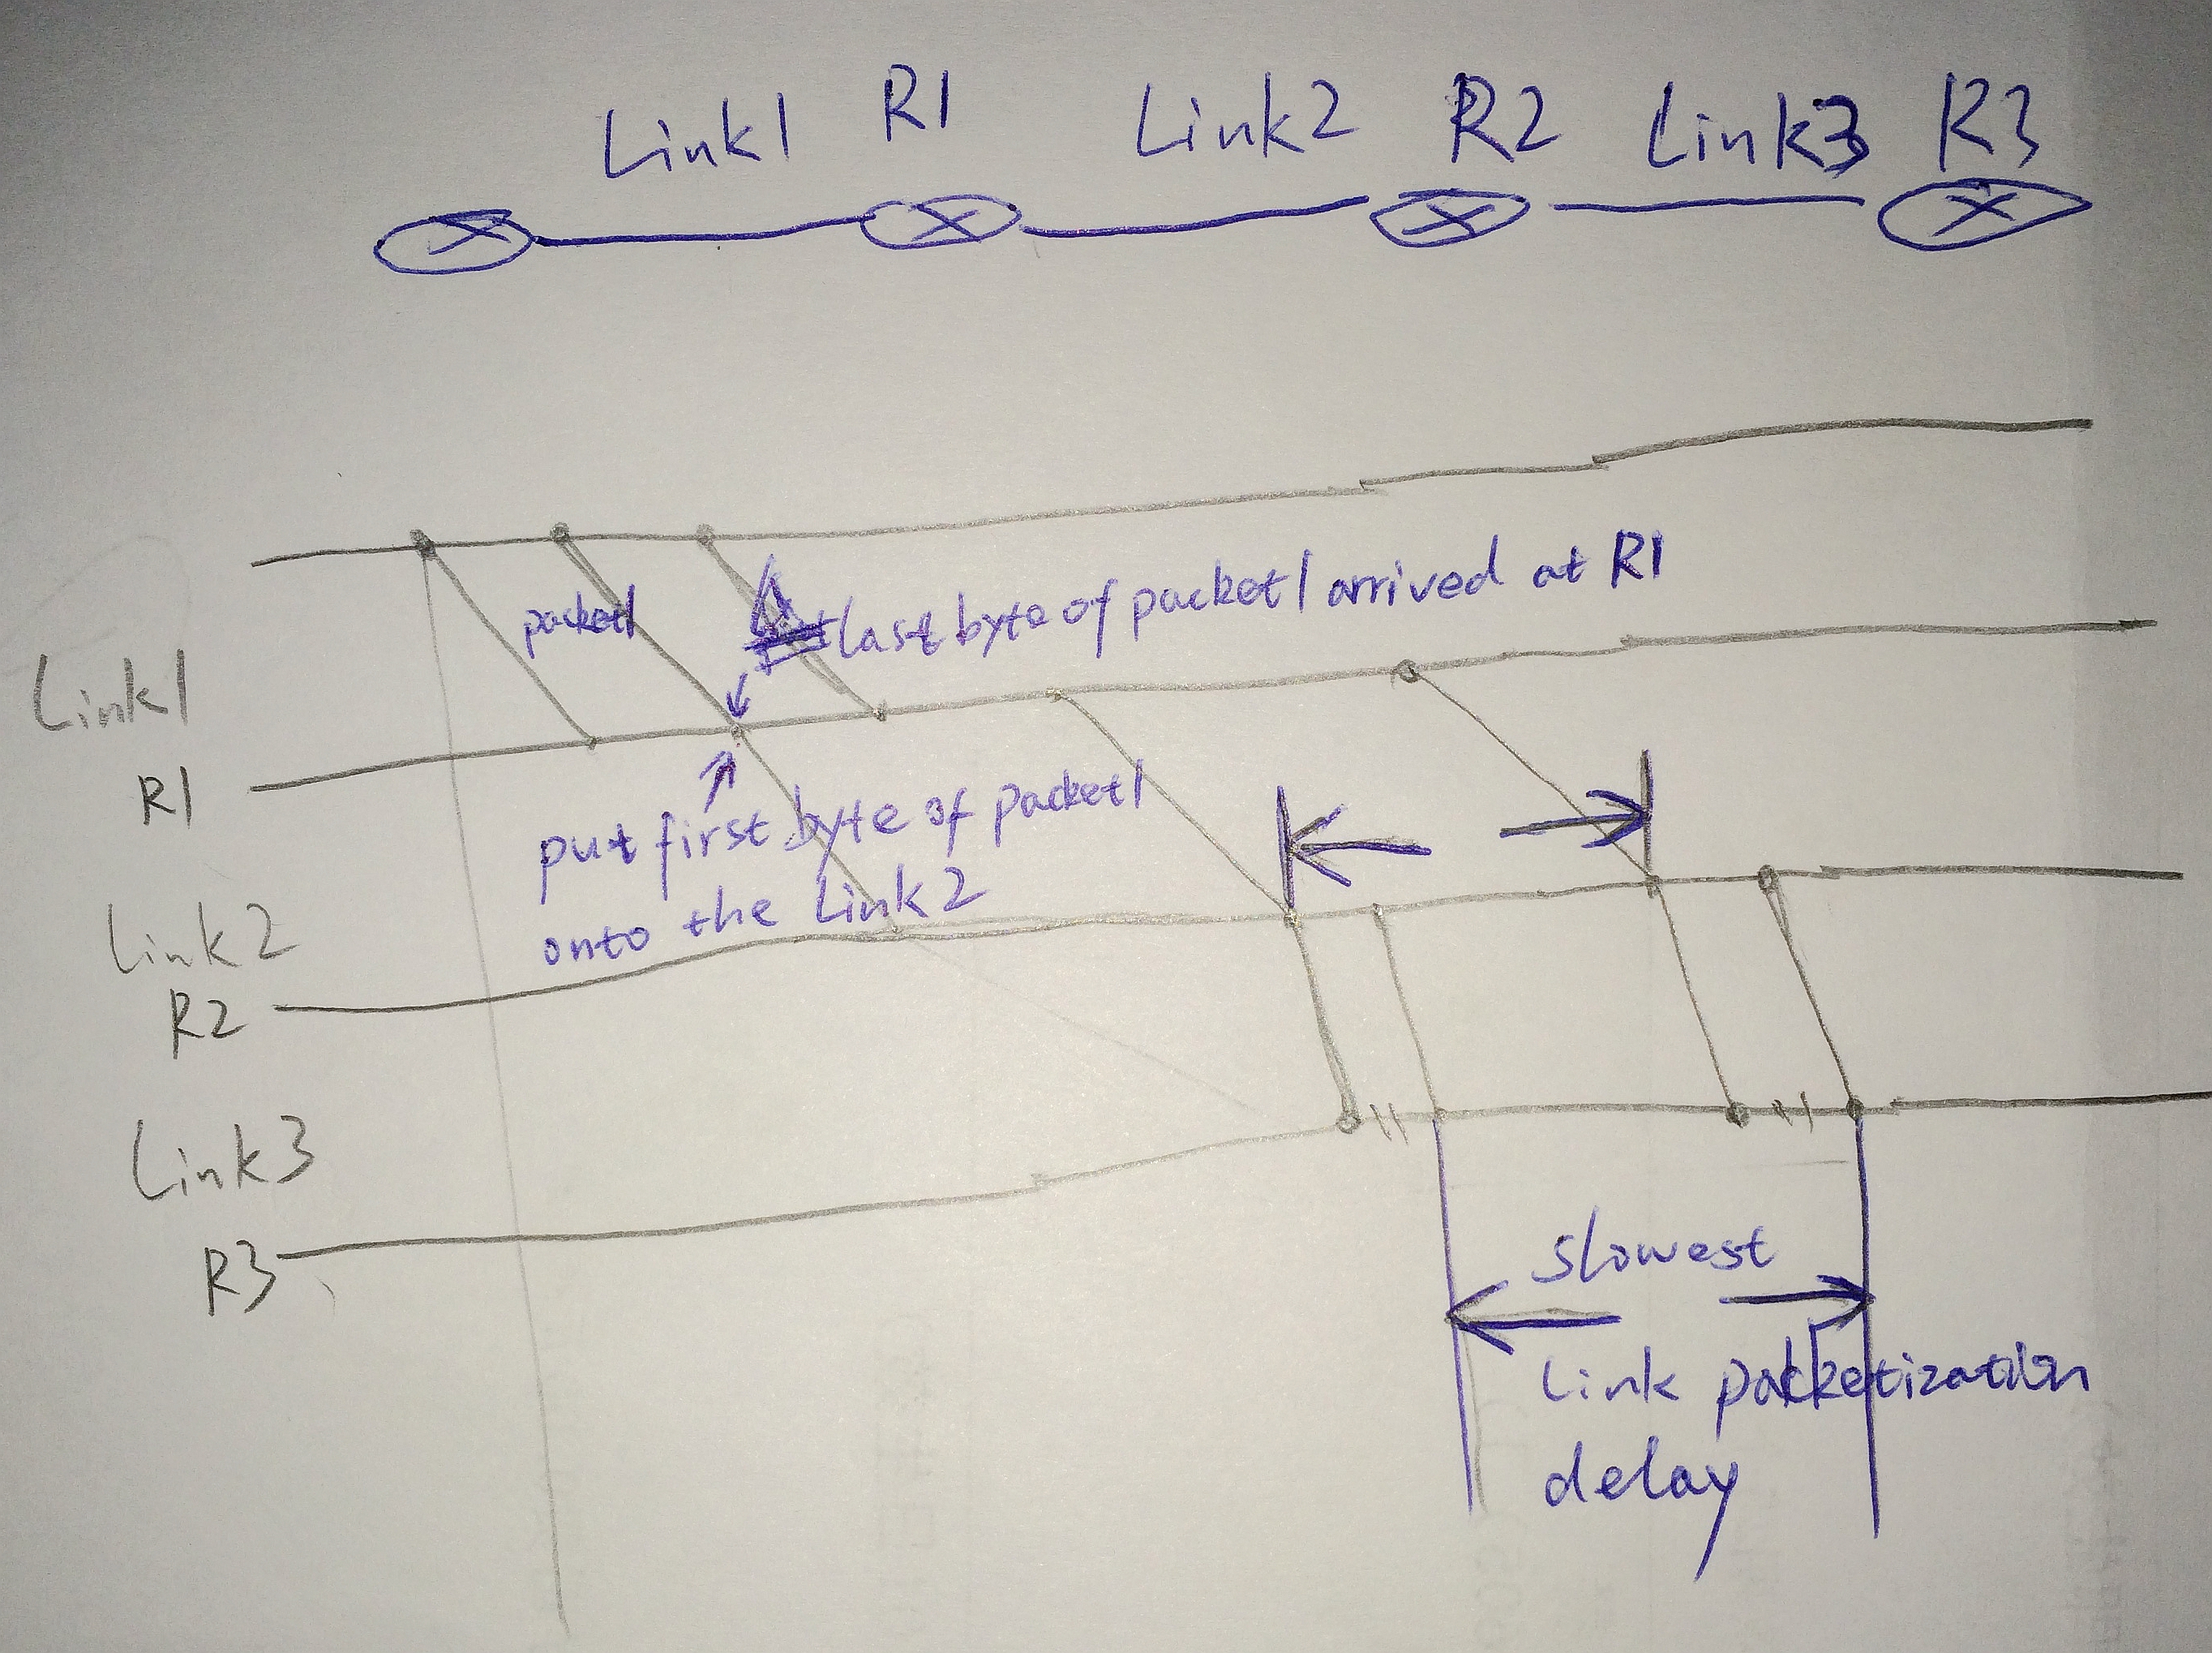 Link1 R1 Link2 R2 Link3 R3
packet1
last byte of packet1 arrived at R1
Link1
R1
put first byte of packet1
onto the Link2
Link2
R2
Link3
R3
slowest
Link packetization
delay